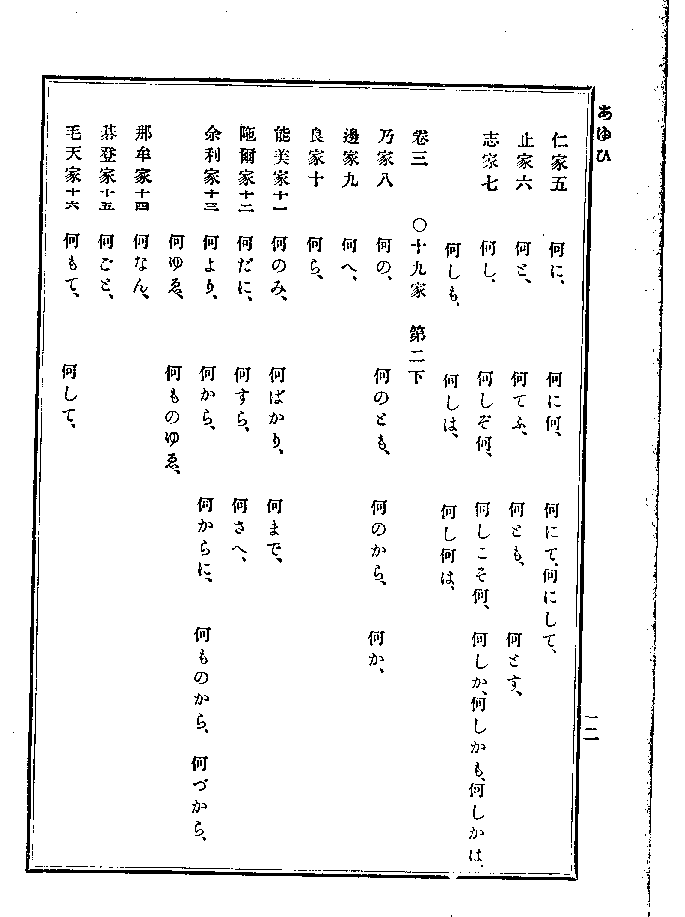 あゆひ
仁家五 何に、 何に何、 何にて、何にして、
止家六 何と、 何てふ、 何とも、 何とす、
志家七 何し、 何しぞ何、 何しこそ何、 何しか、何しかも、何しかは、
何しも、 何しは、 何し何は、
卷三 〇十九家 第二下
乃家八 何の、 何のとも、 何のから、 何か、
邊家九 何へ、
良家十 何ら、
能美家十一 何のみ、 何ばかり、 何まで、
陁爾家十二 何だに、 何すら、 何さへ、
余利家十三 何より、 何から、 何からに、 何ものから、 何づから、
何ゆゑ、 何ものゆゑ、
那牟家十四 何なん、
碁登家十五 何ごと、
毛天家十六 何もて、 何して、
一二